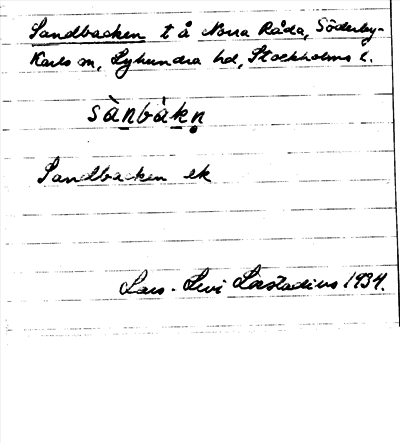 Sandbacken t å Norra Råda, Söderby-
Karls sn, Lyhundra hd, Stockholms l.
sànbàkn̥
Sandbacken ek
Lars-Levi Læstadius 1934.